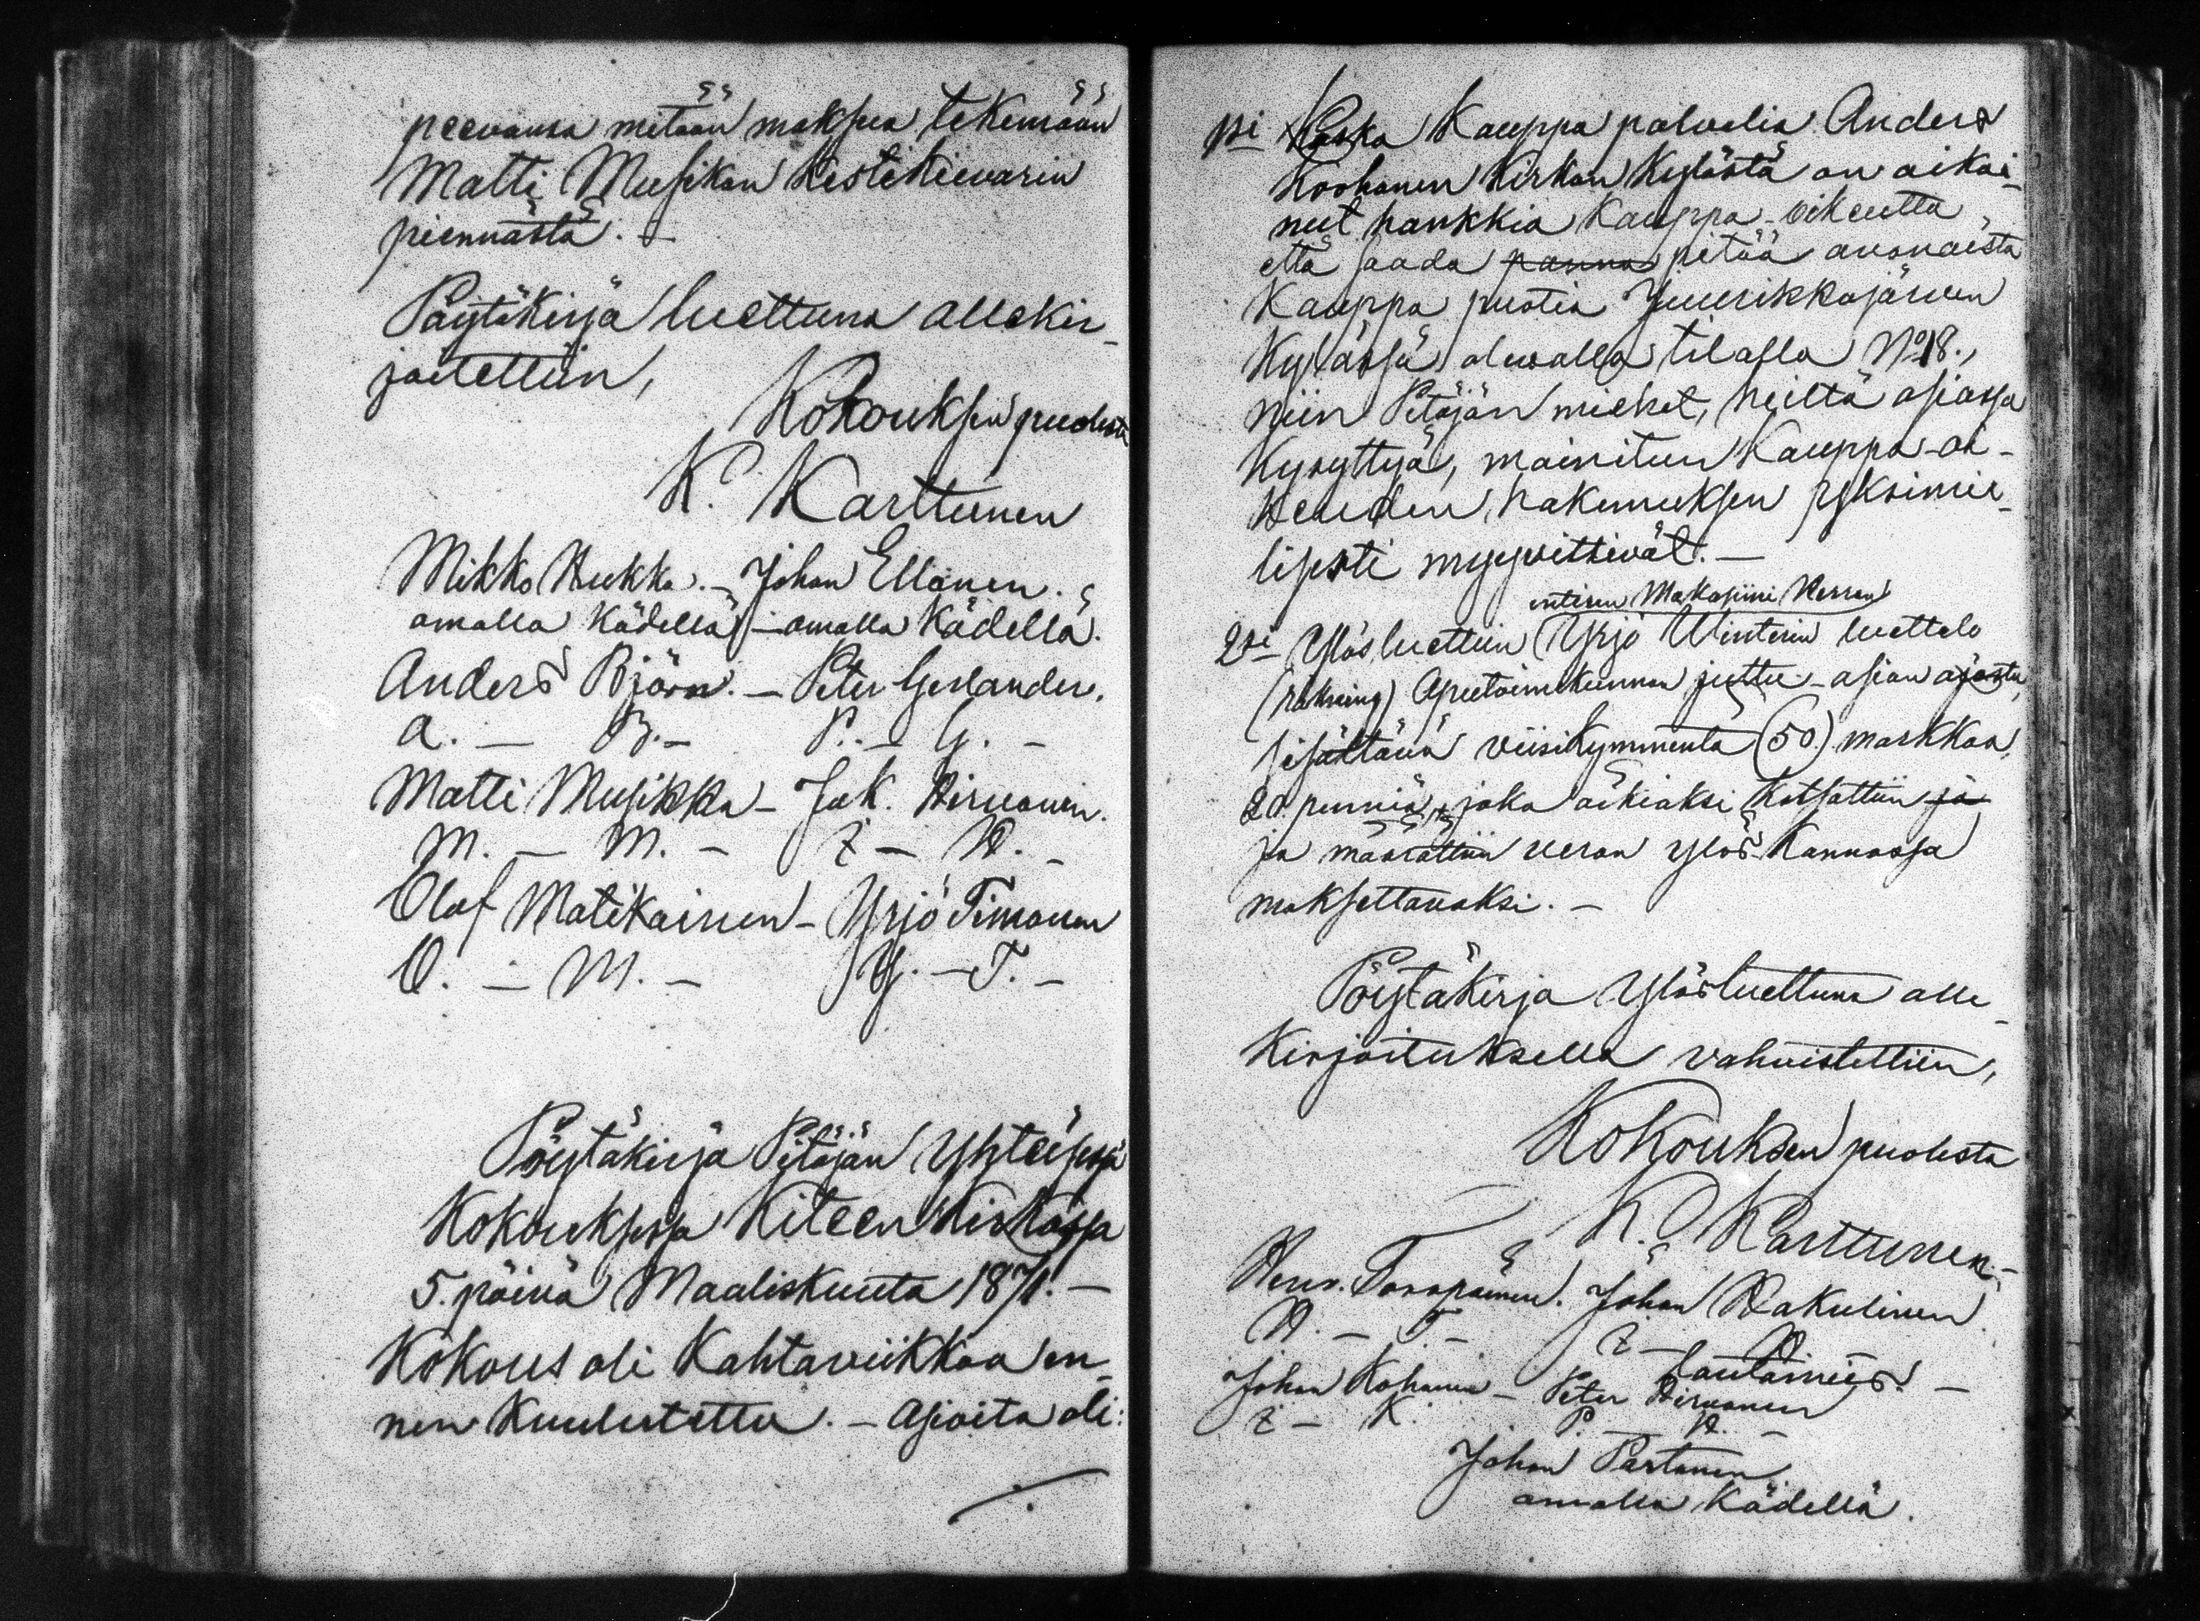 mitään maksua tekemään
Matti Musikan Kestikievarin
piennästä. —
Pöytäkirja luettuna allekir_
joitettiin,
Kokouksen puolesta
K. Karttunen
Mikko Hukka. — Johan Ellonen.
omalla kädellä — omalla kädellä.
Anders Björn. — Peter Gerlander.
A. — B. — P. — G. —
Matti Musikka — Jak. Hirvonen.
M. — M. — J — H. —
Olof Matikainen — Yrjö Timonen
O. — M. — Y. — T. —
Pöytäkirja Pitäjän Yhteisessä
Kokouksessa Kiteen Kirkossa
5. päivä Maaliskuuta 1871. —
Kokous oli Kahtaviikkoa en_
nen Kuulutettu. — Asioita oli:
./.
1si Koska Kauppa palvelia Anders
Koohanen Kirkon Kylästä on aikoi_
nut hankkia Kauppa-oikeutta,
että saada panna pitää avonaista
Kauppa puotia Juurikkajärven
Kylässä olevalla tilalla No 18.,
niin Pitäjän miehet, heiltä asiassa
Kysyttyä, mainitun Kauppa-oi-
keuden hakemuksen yksimie_
lisesti myyvittivät. —
entisen Makasiini Herran
2si Ylösluettiin Yrjö Winterin luettelo
(räkning) Aputoimikunnan juttu-asian ajosta,
sisältävä viisikymmentä (50) markkaa
20. penniä, joka oikiaksi Katsottiin ja
ja määrättiin veron ylös-Kannossa
maksettavaksi. —
Pöytäkirja Ylösluettuna alle_
Kirjoituksella vahvistettiin,
Kokouksen puolesta
K. Karttunen. —
Henr. Toropainen. Johan Hakulinen
H. — T — J — H
Lautamies. —
Johan Kohonen — Peter Hirvonen
J — K. P. H. —
Johan Partanen
omalla Kädellä.